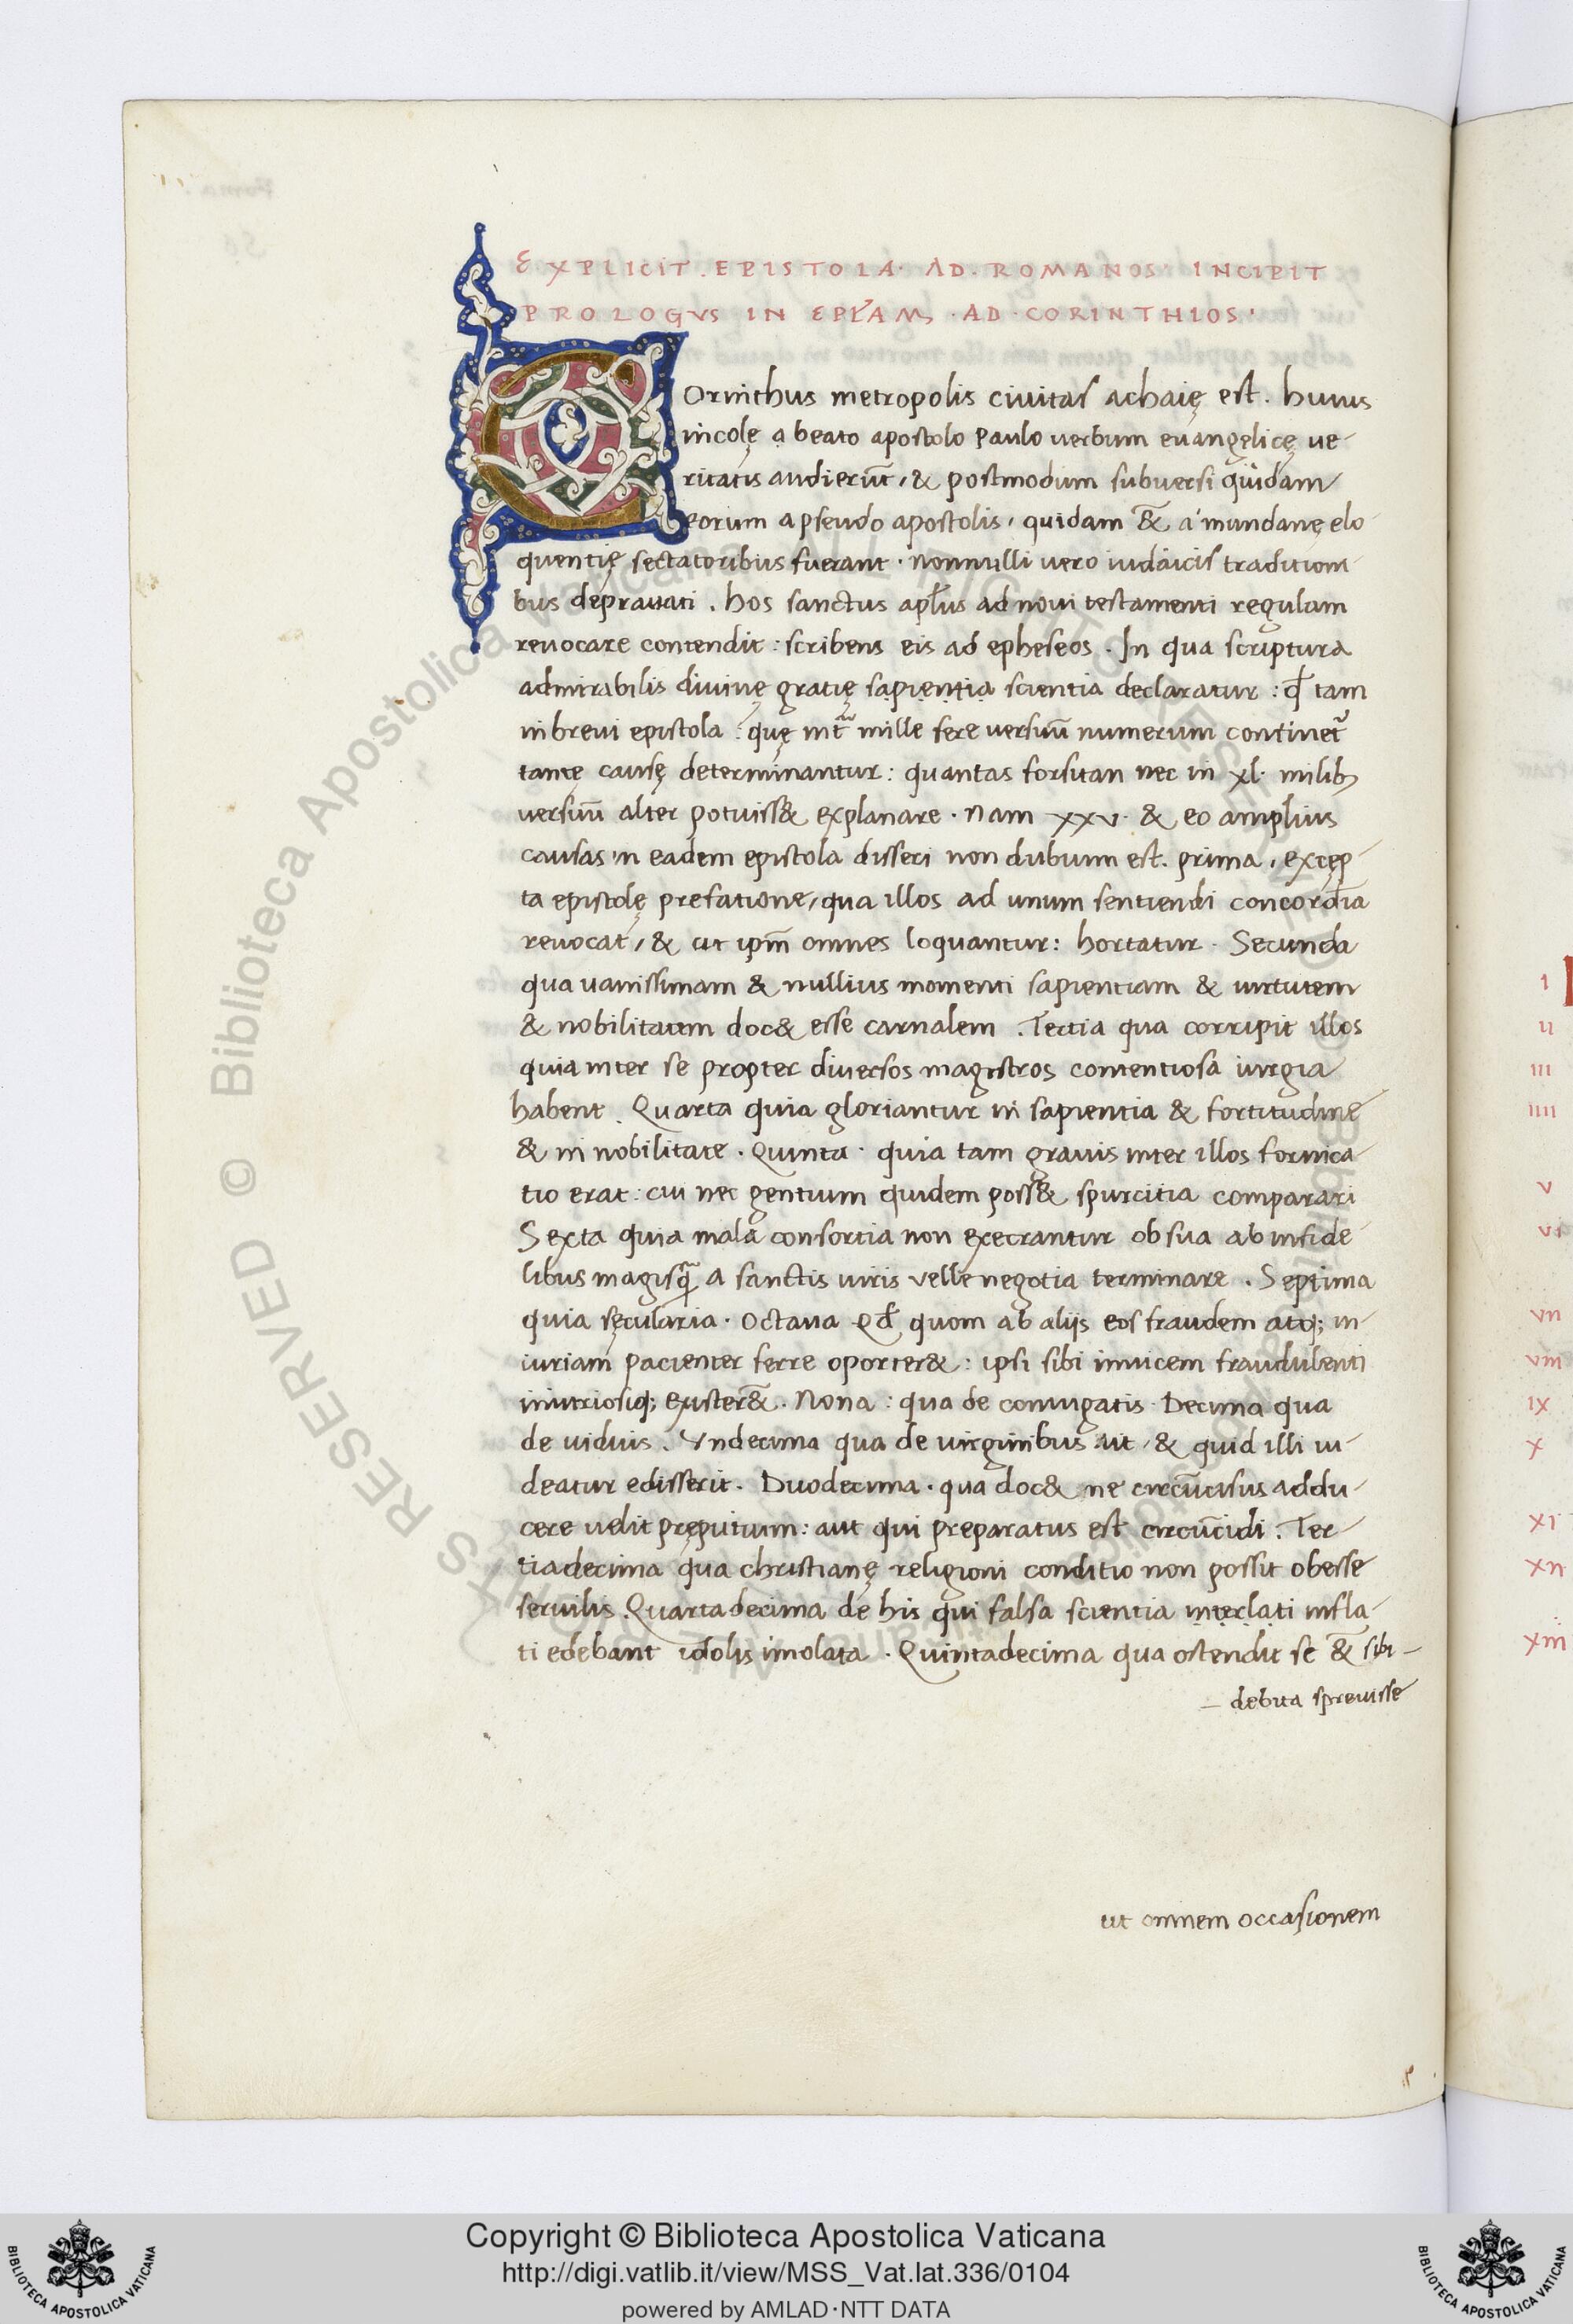 EXPLICIT . EPISTOLA . AD . ROMANOS . INCIPIT
PROLOGVS IN EPL̄AM . AD . CORINTHIOS .
COrinthus metropolis ciuitas achaię est . huius
incolę a beato apostolo paulo uerbum euangelicę ue-
ritatis audierūt , & postmodum subuersi quidam
eorum a pseudo apostolis , quidam & a mundanę elo-
quentię sectatoribus fuerant . nonnulli uero iudaicis traditioni
bus deprauati . hos sanctus apl̄us ad noui testamenti regulam
reuocare contendit : scribens eis ab epheseos . In qua scriptura
admirabilis diuinę gratię sapientia scientia declaratur : qđ tam
in breui epistola : quę int̄ mille fere uersuū numerum continet̄
tantę causę determinantur : quantas forsitan nec in xl . milib;
uersuū alter potuiss& explanare . nam xxv . & eo amplius
causas in eadem epistola disseri non dubium est . prima , excep-
ta epistolę prefatione , qua illos ad unum sentiendi concordia
reuocat , & ut ipm̄ omnes loquantur : hortatur . Secunda
qua uanissimam & nullius momenti sapientiam & uirtutem
& nobilitatem doc& esse carnalem . Tertia qua corripit illos
quia inter se propter diuersos magistros contentiosa iurgia
habent . Quarta quia gloriantur in sapientia & fortitudine
& in nobilitate . Quinta . quia tam grauis inter illos fornica-
tio erat : cui nec gentium quidem poss& spurcitia comparari
Sexta quia mala consortia non execrantur ob sua ab infide-
libus magisq̄ a sanctis uiris velle negotia terminare . Septima
quia sęcularia . Octaua qđ quom ab aliis eos fraudem atq; in-
iuriam pacienter ferre oporter& : ipsi sibi inuicem fraudulenti
iniuriosiq; exister& . Nona : qua de coniugatis . Decima qua
de uiduis . Vndecima qua de uirginibus ait , & quid illi ui-
deatur edisserit . Duodecima . qua doc& ne circūcisus addu-
cere uelit pręputium : aut qui preparatus est circūcidi . Ter-
tiadecima qua christianę religioni conditio non possit obesse
seruilis . Quartadecima de his qui falsa scientia interlati infla-
ti edebant idolis imolata . Quintadecima qua ostendit se & sibi –
– debita spreuisse
ut omnem occasionem
I
II
III
IIII
V
VI
VII
VIII
IX
X
XI
XII
XIII
© Biblioteca Apostolica Vaticana ALL RIGHTS RESERVED
Copyright © Biblioteca Apostolica Vaticana
http://digi.vatlib.it/view/MSS_Vat.lat.336/0104
powered by AMLAD·NTT DATA
BIBLIOTECA APOSTOLICA VATICANA
BIBLIOTECA APOSTOLICA VATICANA